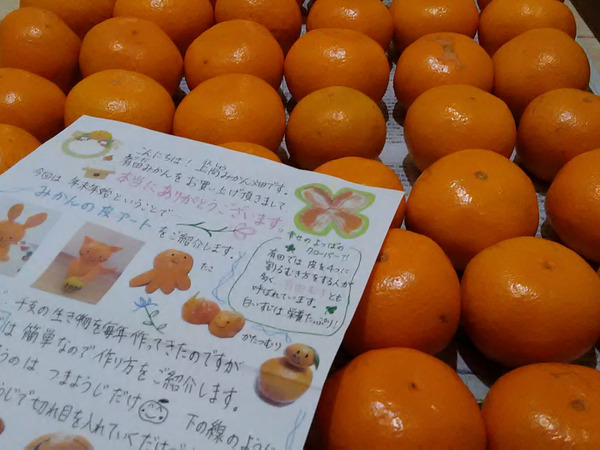 こんにちは！上門みかん畑です。
有田みかんをお買い上げ頂きまして
本当にありがとうございます。
今回は年末年始ということで
みかんの皮アートをご紹介します。
たこ
幸せのよつばの
クローバー?!
有田では皮を4つに
割るむき方をする人が
多く、
とも
呼ばれています。
白いすじは栄養たっぷり！
かたつむり
干支の生き物を毎年作ってきたのですが
は簡単なので作り方をご紹介します。
うのはつまようじだけ
下の線のように
うじで切れ目を入れていくだけ